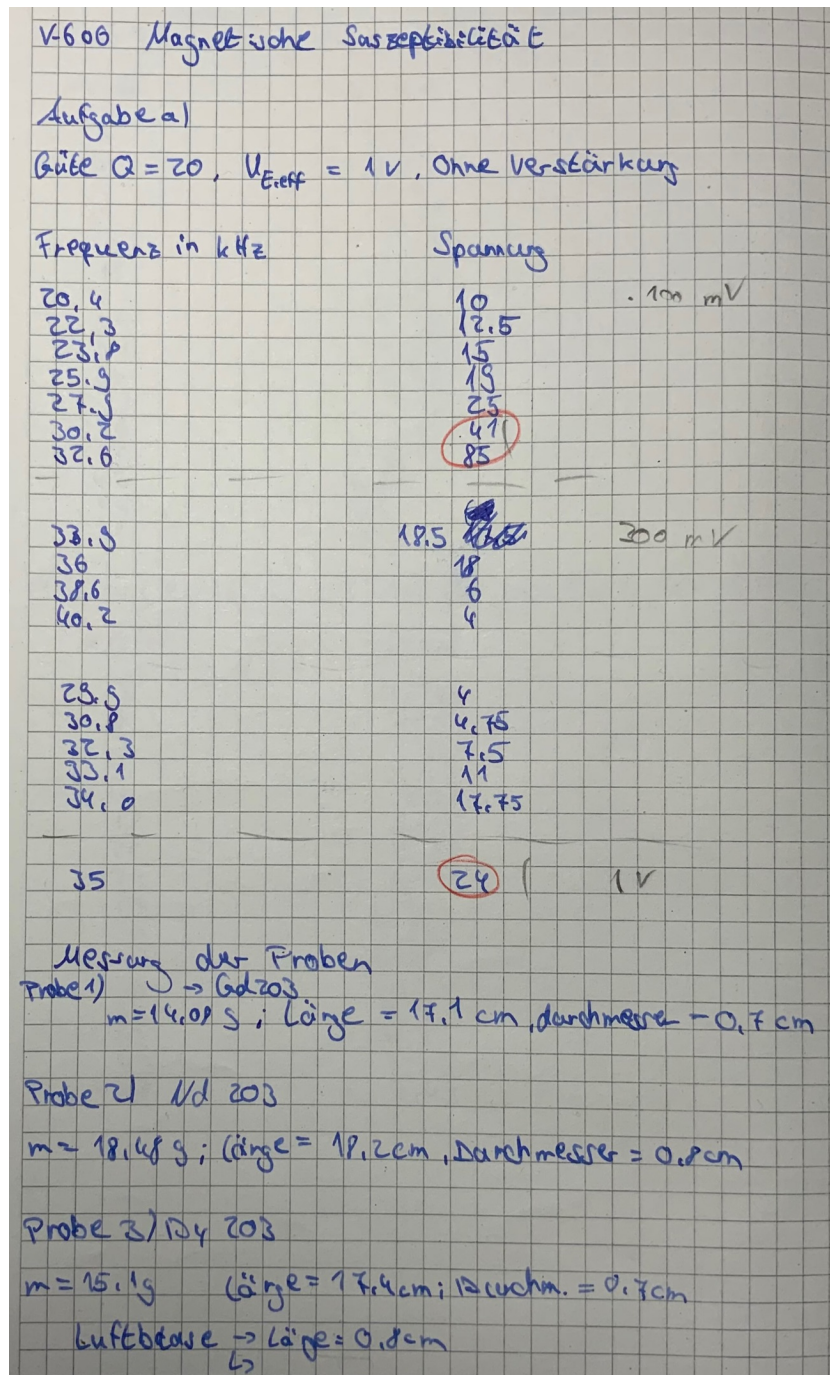 V-606 Magnetische Suszeptibilität
Aufgabe a)
Güte Q = 20, U_E,eff = 1V, Ohne Verstärkung
Frequenz in kHz Spannung
20,4 10 · 100 mV
22,3 12.5
23,8 15
25.9 19
27.9 25
30.2 41
32.6 85
33.9 18.5 300 mV
36 18
38,6 6
40,2 4
29.9 4
30,8 4,75
32,3 7,5
33,1 11
34,0 17,75
35 24 1V
Messung der Proben
Probe 1) → Gd203
m=14,08 g ; Länge = 17,1 cm, durchmesser = 0,7 cm
Probe 2) Nd 203
m = 18,48 g ; Länge = 18,2cm, Durchmesser = 0,8cm
Probe 3) Dy 203
m = 15,1g Länge = 17,4cm ; Durchm. = 0,7cm
Luftblase → Länge = 0,8cm
↳